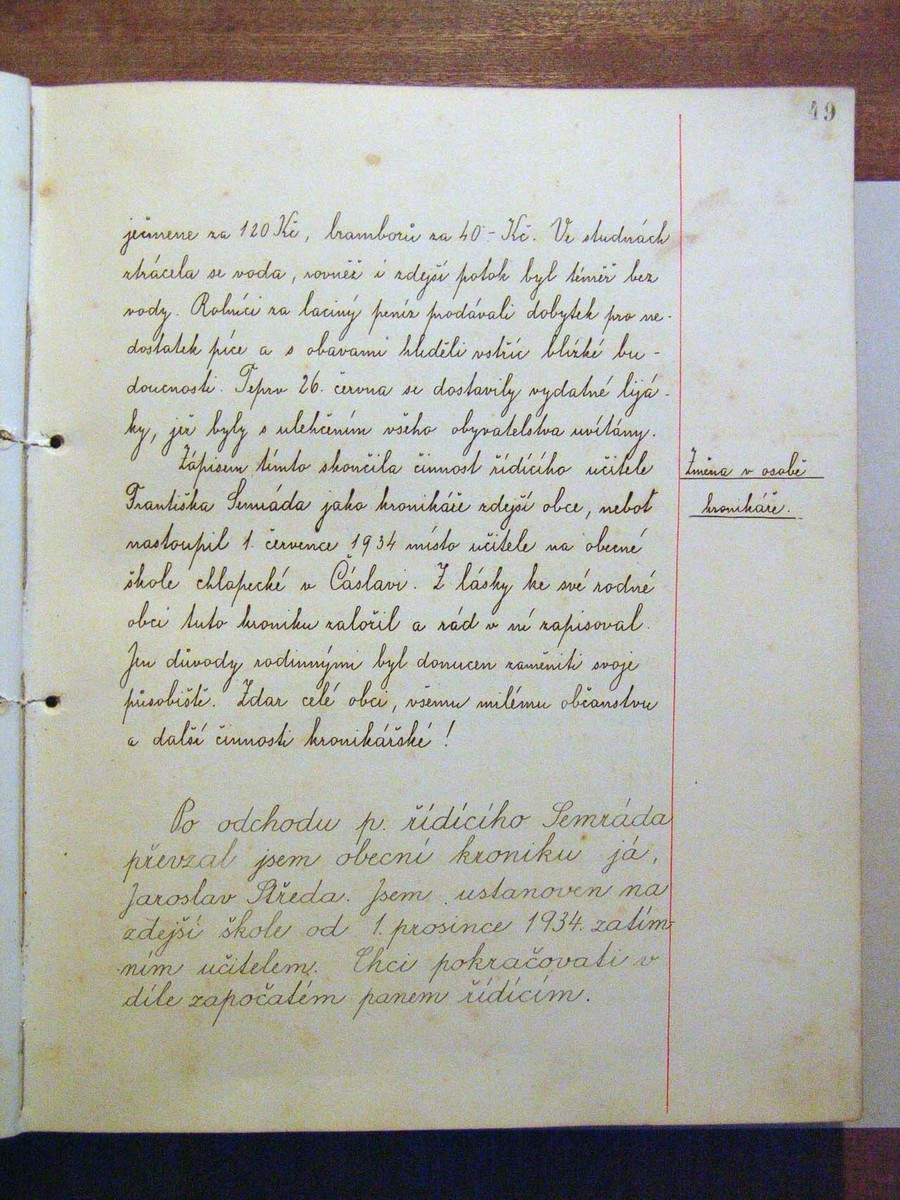 49
ječmene za 120 Kč, bramborů za 40·- Kč. Ve studnách
ztrácela se voda, rovněž i zdejší potok byl téměř bez
vody. Rolníci za laciný peníz prodávali dobytek pro ne-
dostatek píce a s obavami hleděli vstříc blízké bu-
doucnosti. Teprv 26. června se dostavily vydatné lijá-
ky, jež byly s ulehčením všeho obyvatelstva uvítány.
Zápisem tímto skončila činnost řídícího učitele
Františka Semráda jako kronikáře zdejší obce, neboť
nastoupil 1. července 1934 místo učitele na obecné
škole chlapecké v Čáslavi. Z lásky ke své rodné
obci tuto kroniku založil a rád v ní zapisoval.
Jen důvody rodinnými byl donucen zaměniti svoje
působiště. Zdar celé obci, všemu milému občanstvu
a další činnosti kronikářské!
Změna v osobě
kronikáře.
Po odchodu p. řídícího Semráda
převzal jsem obecní kroniku já,
Jaroslav Středa. Jsem ustanoven na
zdejší škole od 1. prosince 1934. zatím-
ním učitelem. Chci pokračovati v
díle započatém panem řídícím.